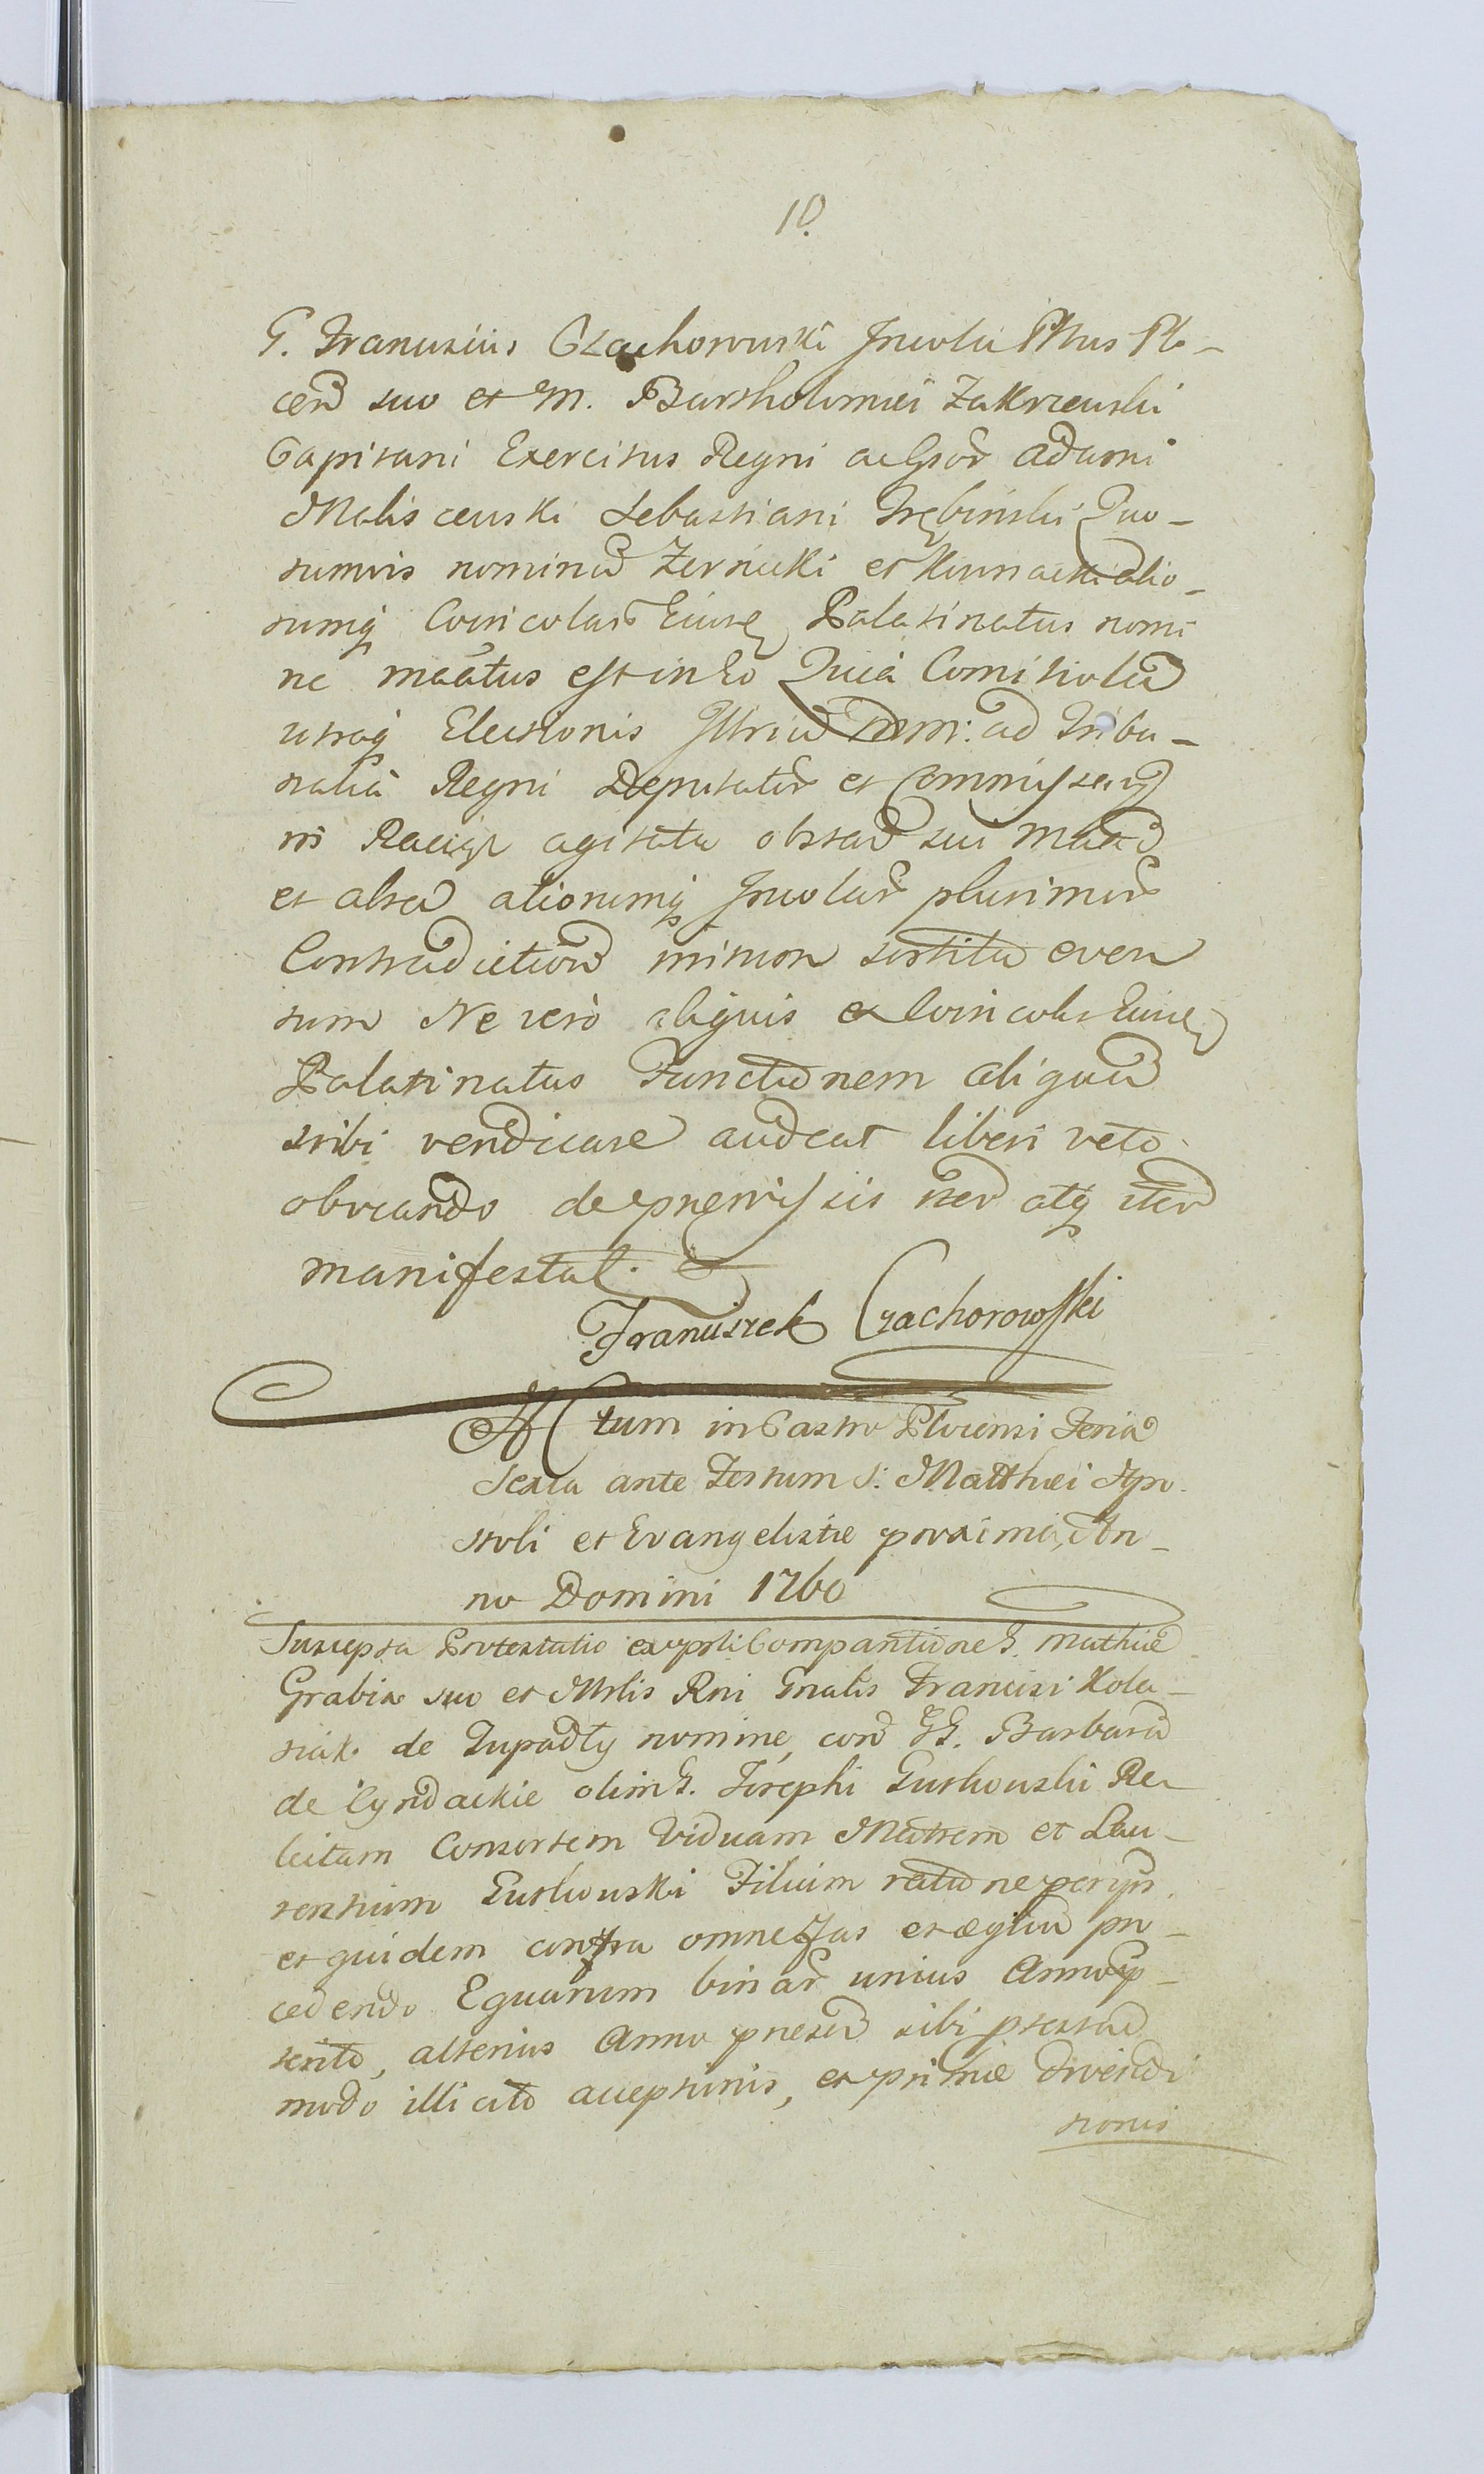 10.
G. Franciscus Czachorowski Incola Pttus Plo-
cen suo et M. Bartholomei Zakrzewski
Capitani Exercitus Regni ac Gsor Adami
Maliscewski Sebastiani Trębinski Duo-
rumvis nominu Zernicki et alio-
rumq Coincolar Eiusd Palatinatus nomi
ne mãatus est in Eo Quia Comitiola
utraq Electionis Illriu Dnor: ad Tribu-
nalia Regni Deputator et Commissarij
in Raciąż agitata obstan sui
et alior aliorumq Incolar plurimor
Contradictione minon sortita even
tum Ne vero aliquis ex Coincolis Eiusd
Palatinatus Functionem aliquam
sibi vendicare audeat liberi veto
obviando de premissis iter atq iter
manifestat.
Franciszek Czachorowski
Actum in Castro Plocensi Feria
Sexta ante Festum S: Matthæi Apo-
stoli et Evangelistæ proxima, An-
no Domini 1760
Suscepta Protestatio ex Compartitione G. Mathiæ
Grabia suo et Mrlis Rni Gnalis Francisci Kola-
siak de Tupadły nomine, con GG. Barbaram
de Cyndackie olim G. Josephi Gutkowski Re-
lictam Consortem Viduam Matrem et Lau-
rentium Gutkowski Filium ratione
et quidem contra omne Jus et æquu pro-
cedendo Equarum binar unius Anno p-
terito, alterius Anno presen sibi
modo illicito acceptionis, et primæ
tionis